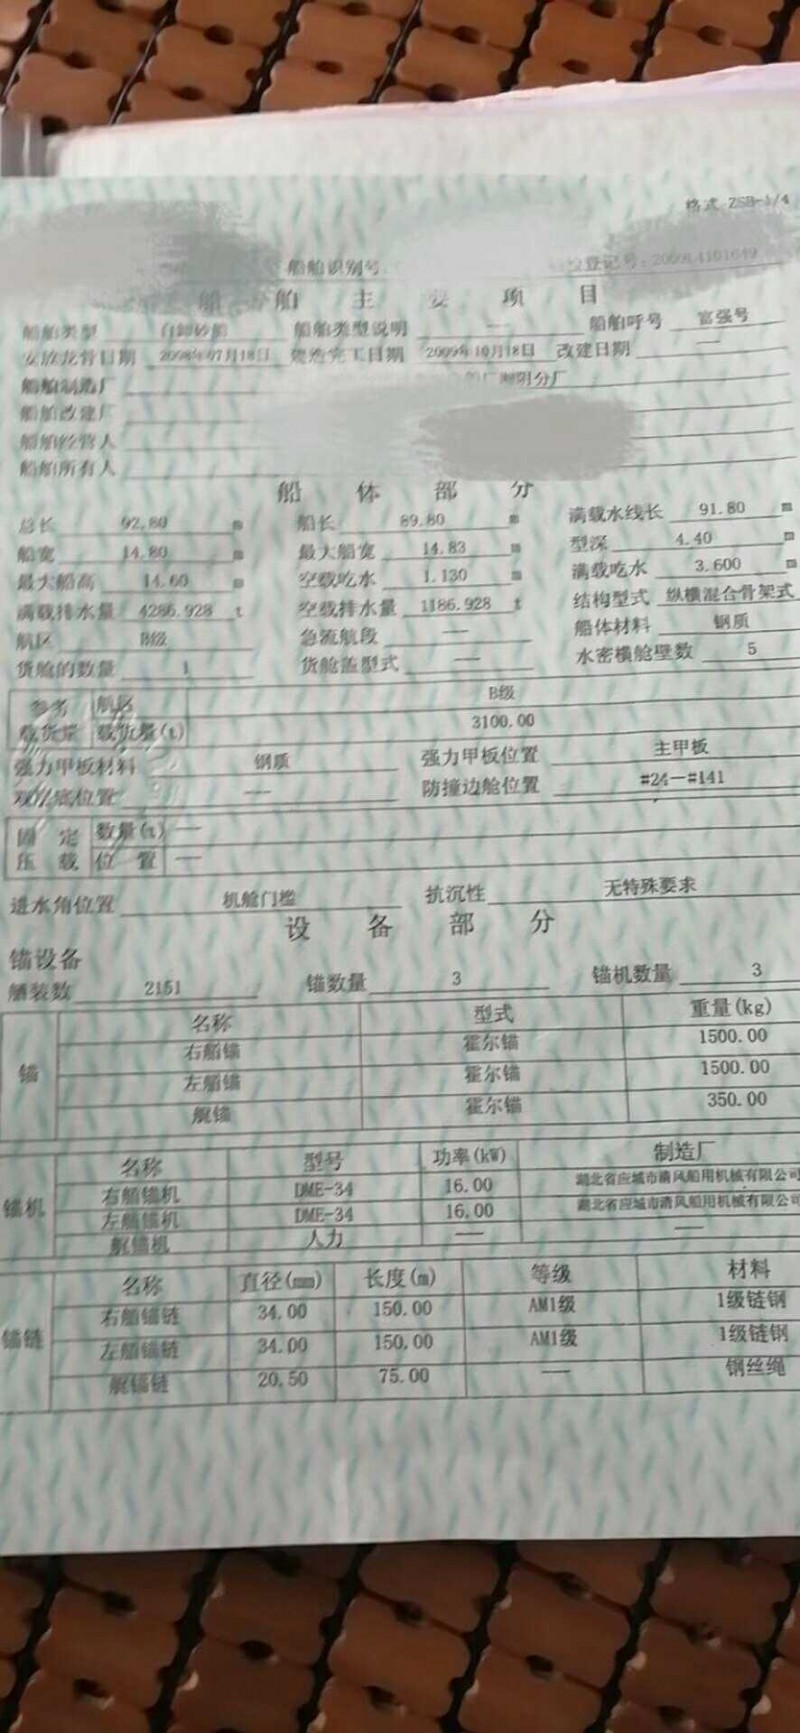 格式 ZSB-1/4
船舶识别号 登记号:2009L4101649
船 舶 主 要 项 目
船舶类型 自卸砂船 船舶类型说明 — 船舶呼号 富强号
安放龙骨日期 2008年07月18日 建造完工日期 2009年10月18日 改建日期 —
船舶制造厂 船厂湘阴分厂
船舶改建厂
船舶经营人
船舶所有人
船 体 部 分
总长 92.80 m 船长 89.80 m 满载水线长 91.80 m
船宽 14.80 m 最大船宽 14.83 m 型深 4.40 m
最大船高 14.60 m 空载吃水 1.130 m 满载吃水 3.600 m
满载排水量 4286.928 t 空载排水量 1186.928 t 结构型式 纵横混合骨架式
航区 B级 急流航段 — 船体材料 钢质
货舱的数量 1 货舱盖型式 — 水密横舱壁数 5
参考 航区 B级
载货量 载货量(t) 3100.00
强力甲板材料 钢质 强力甲板位置 主甲板
双层底位置 — 防撞边舱位置 #24—#141
固 定 数量(t) —
压 载 位 置 —
进水角位置 机舱门槛 抗沉性 无特殊要求
设 备 部 分
锚设备
舾装数 2151 锚数量 3 锚机数量 3
名称 型式 重量(kg)
锚 右艏锚 霍尔锚 1500.00
左艏锚 霍尔锚 1500.00
艉锚 霍尔锚 350.00
名称 型号 功率(kW) 制造厂
锚机 右艏锚机 DME-34 16.00 湖北省应城市清风船用机械有限公司
左艏锚机 DME-34 16.00 湖北省应城市清风船用机械有限公司
艉锚机 人力 — —
名称 直径(mm) 长度(m) 等级 材料
锚链 右艏锚链 34.00 150.00 AM1级 1级链钢
左艏锚链 34.00 150.00 AM1级 1级链钢
艉锚链 20.50 75.00 — 钢丝绳